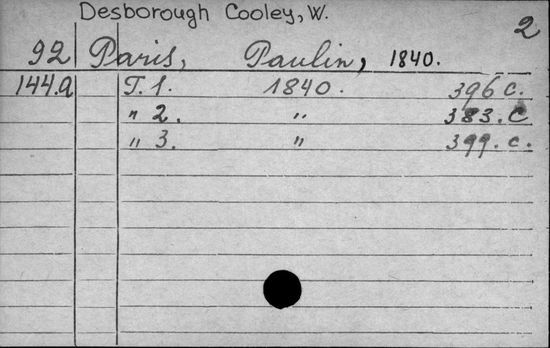 Desborough Cooley, W.
2
92 Paris, Paulin, 1840.
144.a T. 1. 1840. 396 c.
" 2. " 383. c
" 3. " 399. c.